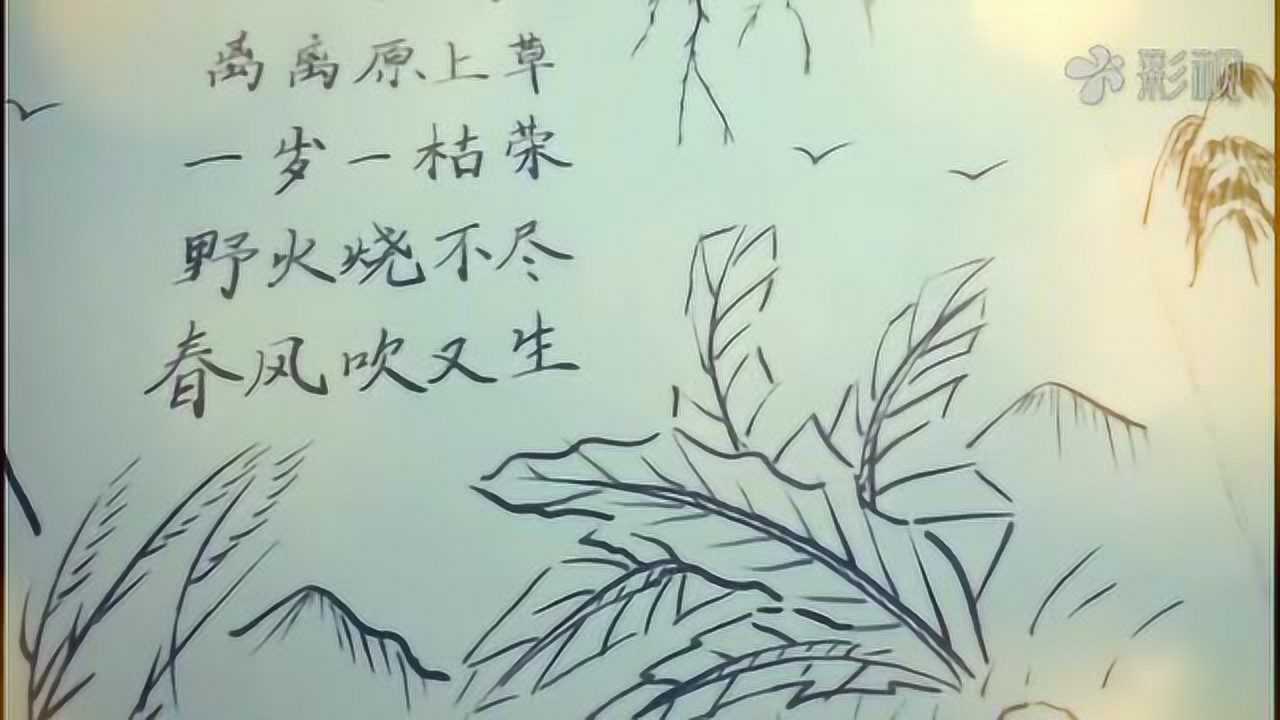 彩视
离离原上草
一岁一枯荣
野火烧不尽
春风吹又生